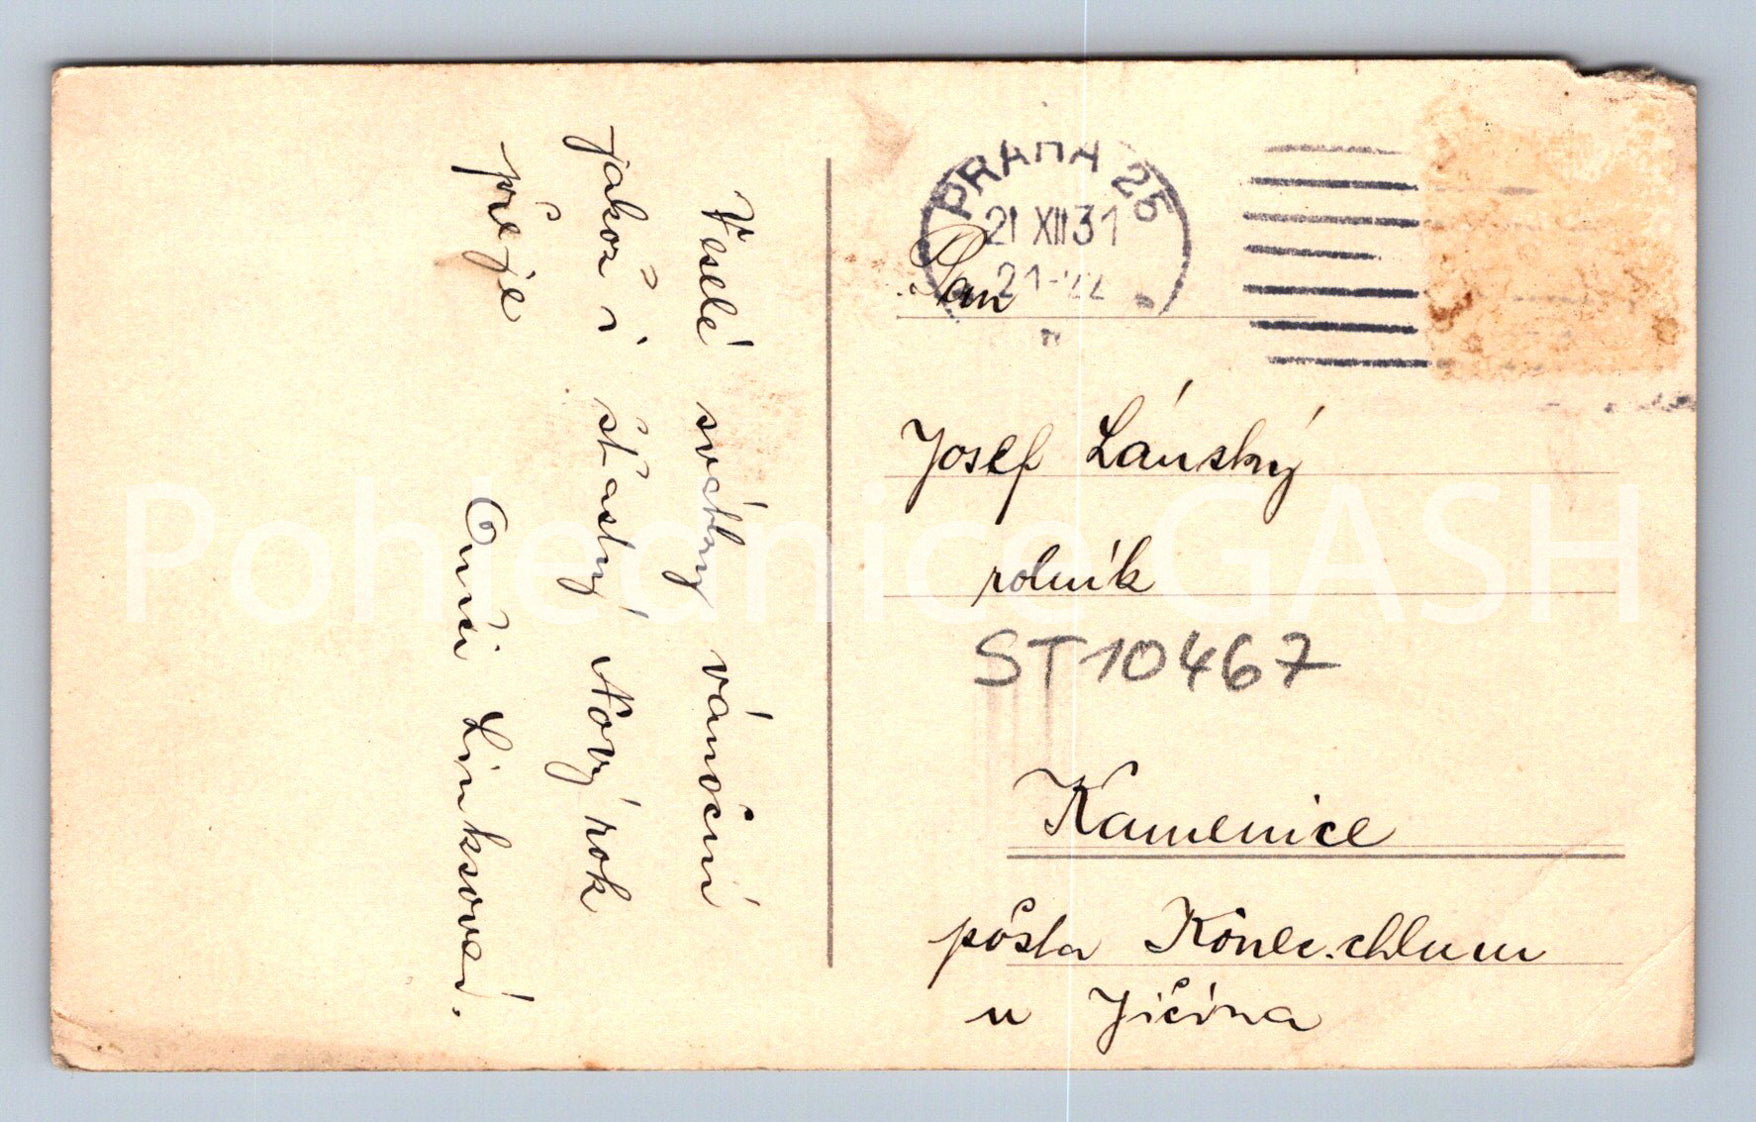 Veselé svátky vánoční
jakož i šťastný Nový rok
přeje Linksová.
PRAHA 25
21 XII 31
21-22
Pan
Josef Lánský
rolník
ST10467
Kamenice
pošta Konec.chlum
u Jičína
Pohlednice GASH